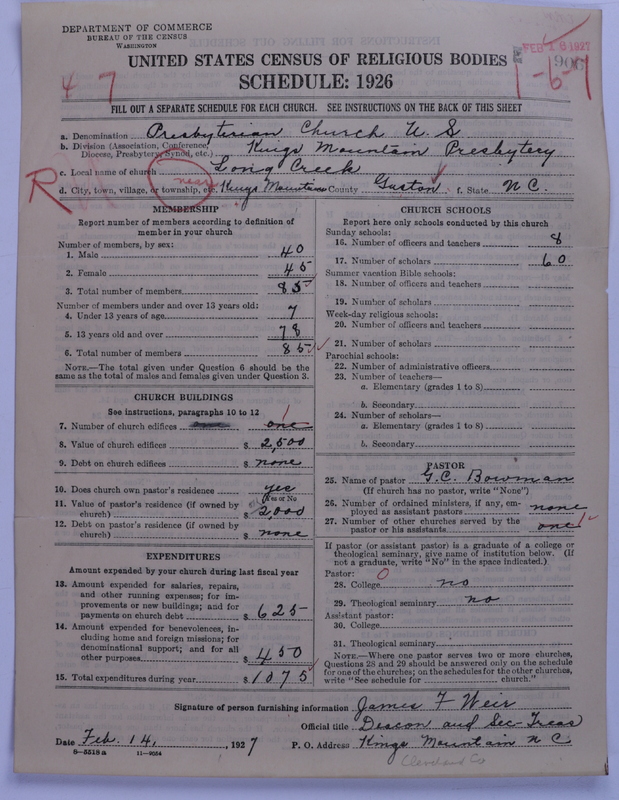 DEPARTMENT OF COMMERCE
BUREAU OF THE CENSUS
WASHINGTON
FEB 16 1927
906
UNITED STATES CENSUS OF RELIGIOUS BODIES
SCHEDULE: 1926
47
1-6-1
FILL OUT A SEPARATE SCHEDULE FOR EACH CHURCH. SEE INSTRUCTIONS ON THE BACK OF THIS SHEET
a. Denomination Presbyterian Church U. S
b. Division (Association, Conference, Diocese, Presbytery, Synod, etc.) Kings Mountain Presbytery
c. Local name of church Long Creek
R
d. City, town, village, or township, etc. near Kings Mountain County Gaston f. State N C.
MEMBERSHIP
Report number of members according to definition of
member in your church
Number of members, by sex:
1. Male 40
2. Female 45
3. Total number of members 85
Number of members under and over 13 years old:
4. Under 13 years of age 7
5. 13 years old and over 78
6. Total number of members 85
NOTE.—The total given under Question 6 should be
same as the total of males and females given under Question 3.
CHURCH BUILDINGS
See instructions, paragraphs 10 to 12
1
7. Number of church edifices one
8. Value of church edifices $ 2,500
9. Debt on church edifices $ none
10. Does church own pastor's residence yes
Yes or No
11. Value of pastor's residence (if owned by
church) $ 2,000
12. Debt on pastor's residence (if owned by
church) $ none
EXPENDITURES
Amount expended by your church during last fiscal year
13. Amount expended for salaries, repairs,
and other running expenses; for im-
provements or new buildings; and for
payments on church debt $ 625
14. Amount expended for benevolences, in-
cluding home and foreign missions; for
denominational support; and for all
other purposes $ 450
15. Total expenditures during year $ 1075
CHURCH SCHOOLS
Report here only schools conducted by this church
Sunday schools:
16. Number of officers and teachers 8
17. Number of scholars 60
Summer vacation Bible schools:
18. Number of officers and teachers
19. Number of scholars
Week-day religious schools:
20. Number of officers and teachers
21. Number of scholars
Parochial schools:
22. Number of administrative officers
23. Number of teachers—
a. Elementary (grades 1 to 8)
b. Secondary
24. Number of scholars—
a. Elementary (grades 1 to 8)
b. Secondary
PASTOR
25. Name of pastor G. C. Bowman
(If church has no pastor, write "None")
26. Number of ordained ministers, if any, em-
ployed as assistant pastors none
27. Number of other churches served by the
pastor or his assistants one 1
If pastor (or assistant pastor) is a graduate of a college or
theological seminary, give name of institution below. (If
not a graduate, write "No" in the space indicated.)
Pastor: 0
28. College no
29. Theological seminary no
Assistant pastor:
30. College
31. Theological seminary
NOTE.—Where one pastor serves two or more churches,
Questions 28 and 29 should be answered only on the schedule
for one of the churches; on the schedules for the other churches,
write "See schedule for church."
Signature of person furnishing information James F Weir
Official title Deacon and Sec-Treas
Date Feb. 14, 1927 P. O. Address Kings Mountain N C
8—5518a 11—9054
Cleveland Co